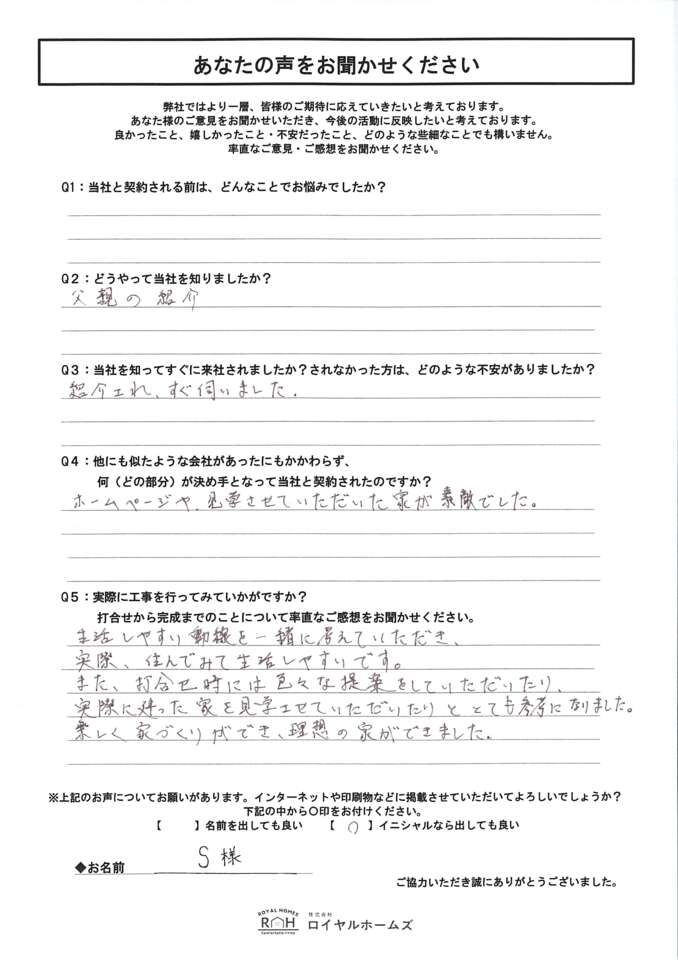 あなたの声をお聞かせください
弊社ではより一層、皆様のご期待に応えていきたいと考えております。
あなた様のご意見をお聞かせいただき、今後の活動に反映したいと考えております。
良かったこと、嬉しかったこと・不安だったこと、どのような些細なことでも構いません。
率直なご意見・ご感想をお聞かせください。
Q1：当社と契約される前は、どんなことでお悩みでしたか？
Q2：どうやって当社を知りましたか？
父親の紹介
Q3：当社を知ってすぐに来社されましたか？されなかった方は、どのような不安がありましたか？
紹介され、すぐ伺いました.
Q4：他にも似たような会社があったにもかかわらず、
何（どの部分）が決め手となって当社と契約されたのですか？
ホームページや、見学させていただいた家が素敵でした。
Q5：実際に工事を行ってみていかがですか？
打合せから完成までのことについて率直なご感想をお聞かせください。
生活しやすい動線を一緒に考えていただき、
実際、住んでみて生活しやすいです。
また、打合せ時には色々な提案をしていただいたり、
実際に建った家を見学させていただいたりととても参考になりました。
楽しく家づくりができ、理想の家ができました.
※上記のお声についてお願いがあります。インターネットや印刷物などに掲載させていただいてよろしいでしょうか？
下記の中から〇印をお付けください。
【　　】名前を出しても良い　【 〇 】イニシャルなら出しても良い
◆お名前　S様
ご協力いただき誠にありがとうございました。
ROYAL HOMES
RH
株式会社
ロイヤルホームズ